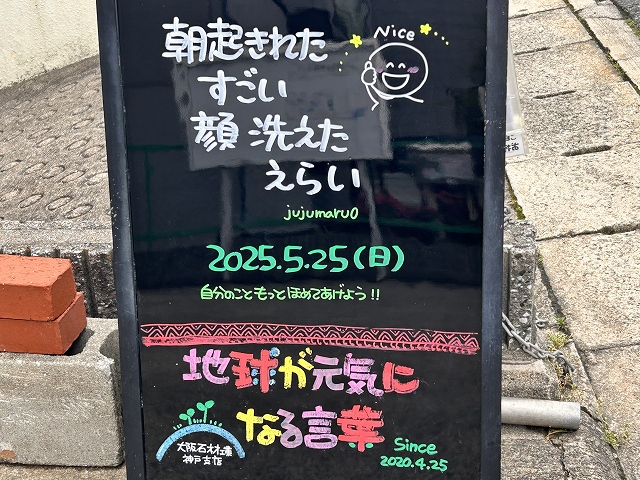 朝起きれた
Nice
すごい
顔洗えた
えらい
jujumaru0
2025.5.25(日)
自分のこともっとほめてあげよう!!
地球が元気に
なる言葉
大阪石材工業
神戸支店
Since
2020.4.25